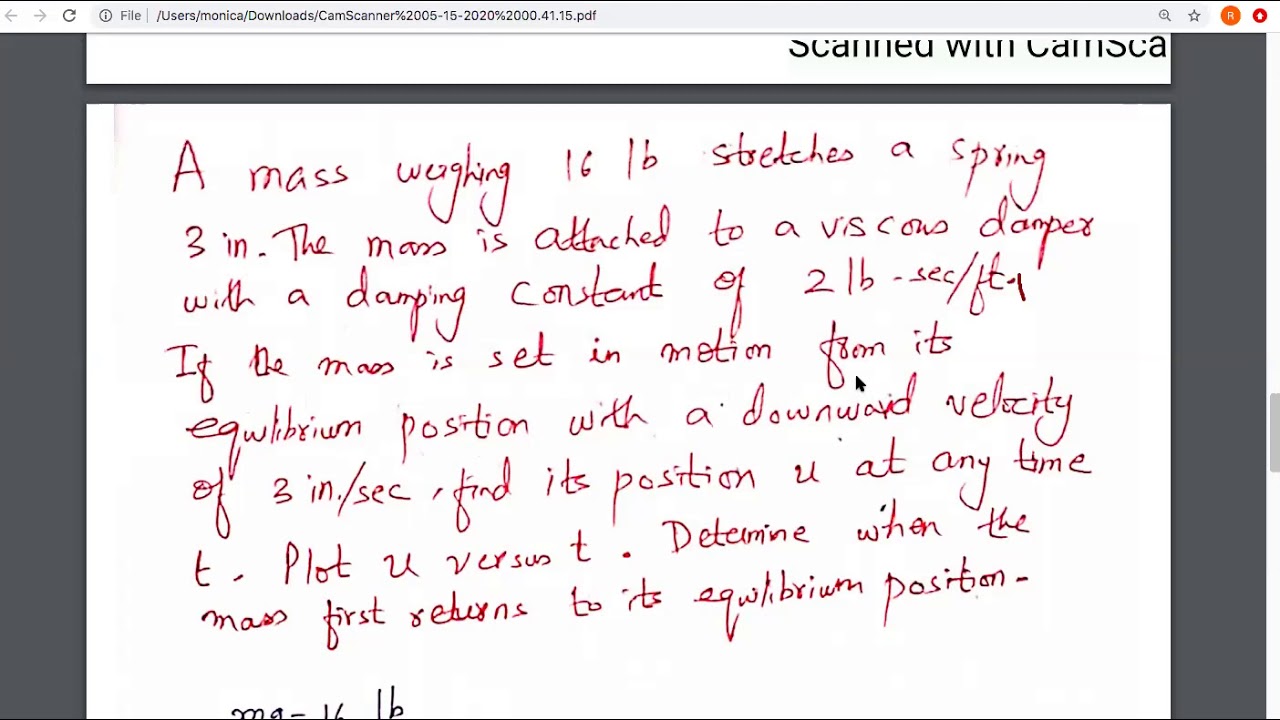 File | /Users/monica/Downloads/CamScanner%2005-15-2020%2000.41.15.pdf
R
Scanned with CamSca
A mass weighing 16 lb stretches a spring
3 in. The mass is attached to a viscous damper
with a damping constant of 2 lb-sec/ft.
If the mass is set in motion from its
equilibrium position with a downward velocity
of 3 in./sec, find its position u at any time
t. Plot u versus t. Determine when the
mass first returns to its equilibrium position.
mg = 16 lb